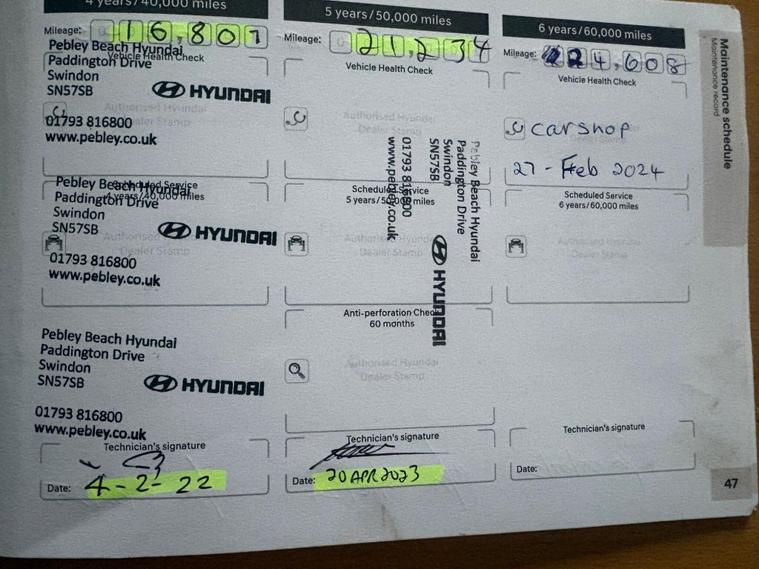 4 years/40,000 miles
Mileage: 16,807
Pebley Beach Hyundai
Vehicle Health Check
Paddington Drive
Swindon
SN57SB
HYUNDAI
Authorised Hyundai
Dealer Stamp
01793 816800
www.pebley.co.uk
Pebley Beach Hyundai
Scheduled Service
4 years/40,000 miles
Paddington Drive
Swindon
SN57SB
HYUNDAI
Authorised Hyundai
Dealer Stamp
01793 816800
www.pebley.co.uk
Pebley Beach Hyundai
Paddington Drive
Swindon
SN57SB
HYUNDAI
01793 816800
www.pebley.co.uk
Technician's signature
Date: 4-2-22
5 years/50,000 miles
Mileage: 21,234
Vehicle Health Check
Authorised Hyundai
Dealer Stamp
Pebley Beach Hyundai
Paddington Drive
Swindon
SN57SB
01793 816800
www.pebley.co.uk
HYUNDAI
Scheduled Service
5 years/50,000 miles
Authorised Hyundai
Dealer Stamp
Anti-perforation Check
60 months
Authorised Hyundai
Dealer Stamp
Technician's signature
Date: 20 APR 2023
6 years/60,000 miles
Mileage: 24,608
Vehicle Health Check
carshop
27 - Feb 2024
Scheduled Service
6 years/60,000 miles
Authorised Hyundai
Dealer Stamp
Technician's signature
Date:
Maintenance schedule
Maintenance record
47